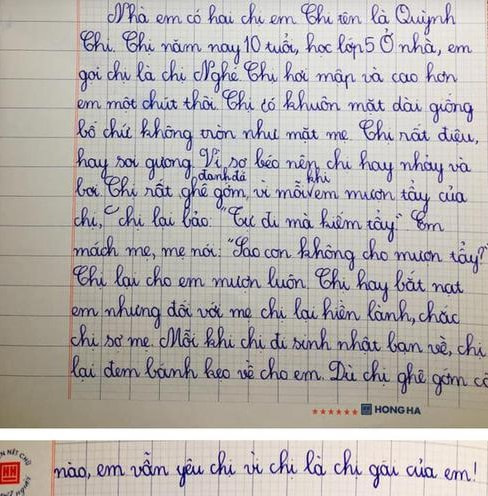 Nhà em có hai chị em. Chị tên là Quỳnh
Chi. Chị năm nay 10 tuổi, học lớp 5. Ở nhà, em
gọi chị là chị Nghé. Chị hơi mập và cao hơn
em một chút thôi. Chị có khuôn mặt dài giống
bố chứ không tròn như mặt mẹ. Chị rất điệu,
hay soi gương. Vì sợ béo nên chị hay nhảy và
bơi. Chị rất đanh đá, ghê gớm, vì mỗi khi em mượn tẩy của
chị, chị lại bảo: "Tự đi mà kiếm tẩy." Em
mách mẹ, mẹ nói: "Sao con không cho mượn tẩy?"
Chị lại cho em mượn luôn. Chị hay bắt nạt
em nhưng đối với mẹ chị lại hiền lành, chắc
chị sợ mẹ. Mỗi khi chị đi sinh nhật bạn về, chị
lại đem bánh kẹo về cho em. Dù chị ghê gớm cỡ
HONG HA
nào, em vẫn yêu chị vì chị là chị gái của em!